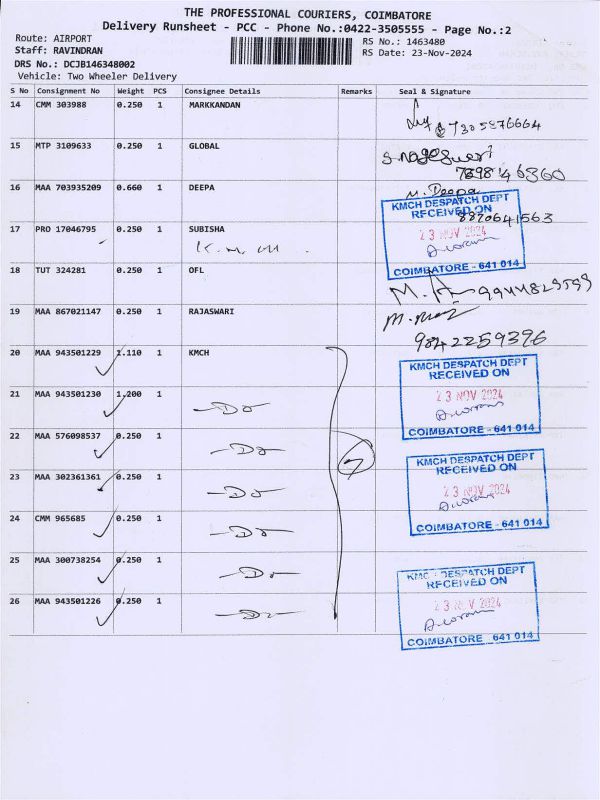 THE PROFESSIONAL COURIERS, COIMBATORE
Delivery Runsheet - PCC - Phone No.:0422-3505555 - Page No.:2
Route: AIRPORT
Staff: RAVINDRAN
DRS No.: DCJB146348002
Vehicle: Two Wheeler Delivery
RS No.: 1463480
RS Date: 23-Nov-2024
S No Consignment No Weight PCS Consignee Details Remarks Seal & Signature
14 CMM 303988 0.250 1 MARKKANDAN
7305876664
15 MTP 3109633 0.250 1 GLOBAL
S. Nageswari
16 MAA 703935209 0.660 1 DEEPA
M. Deepa
8870641563
KMCH DESPATCH DEPT
RECEIVED ON
23 NOV 2024
COIMBATORE - 641 014
17 PRO 17046795 0.250 1 SUBISHA
18 TUT 324281 0.250 1 OFL
19 MAA 867021147 0.250 1 RAJASWARI
9842259396
20 MAA 943501229 1.110 1 KMCH
KMCH DESPATCH DEPT
RECEIVED ON
23 NOV 2024
COIMBATORE - 641 014
21 MAA 943501230 1.200 1 -Do-
22 MAA 576098537 0.250 1 -Do-
7
KMCH DESPATCH DEPT
RECEIVED ON
23 NOV 2024
COIMBATORE - 641 014
23 MAA 302361361 0.250 1 -Do-
24 CMM 965685 0.250 1 -Do-
25 MAA 300738254 0.250 1 -Do-
KMCH DESPATCH DEPT
RECEIVED ON
23 NOV 2024
COIMBATORE 641 014
26 MAA 943501226 0.250 1 -Do-